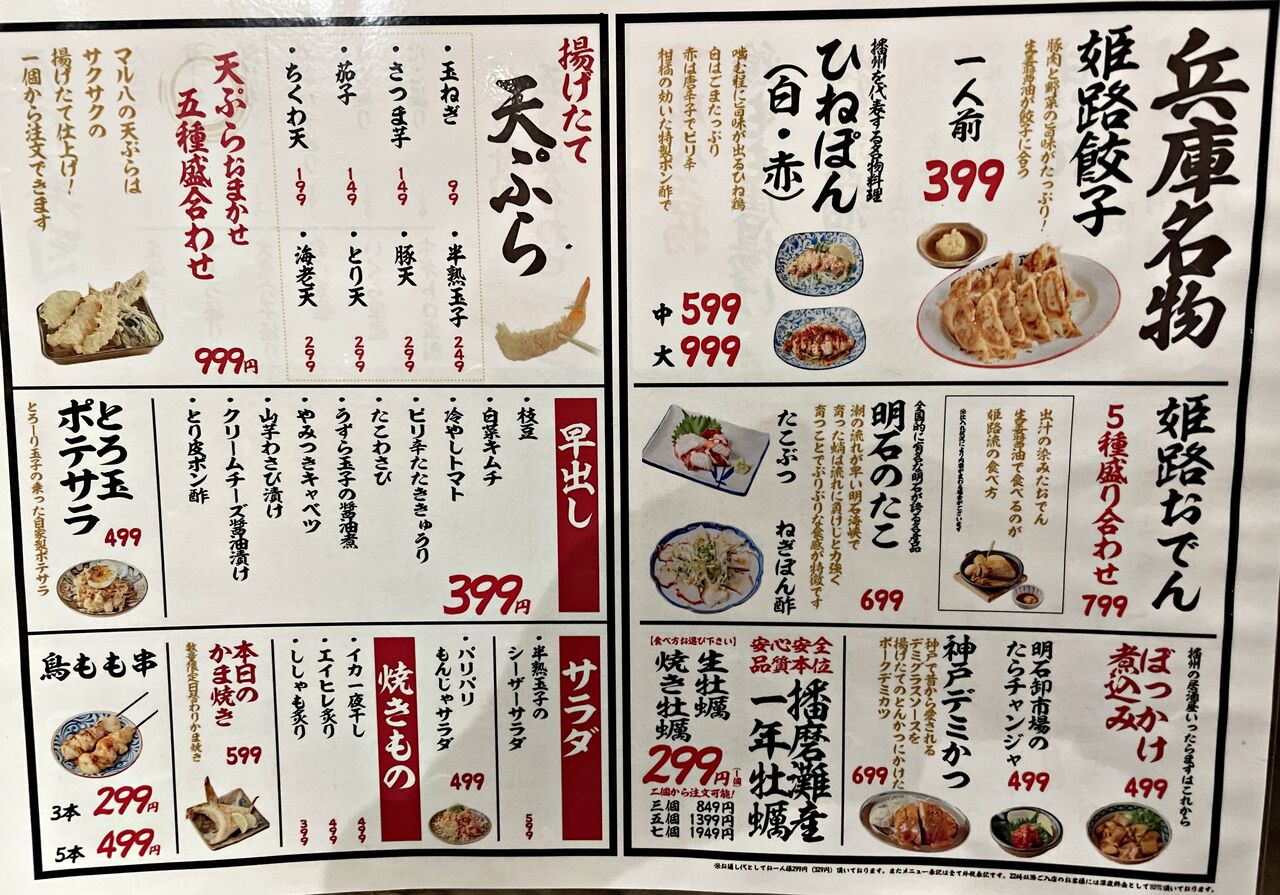 兵庫名物
姫路餃子
豚肉と野菜の旨味がたっぷり!
生姜醤油が餃子に合う
一人前
399
播州を代表する名物料理
ひねぽん
(白・赤)
噛む程に旨味が出るひね鶏
白はごまたっぷり
赤は唐辛子でピリ辛
柑橘の効いた特製ポン酢で
中 599
大 999
姫路おでん
5種盛り合わせ
799
出汁の染みたおでん
生姜醤油で食べるのが
姫路流の食べ方
※仕入れ状況により内容が変わる場合がございます
全国的に有名な明石が誇る名産品
明石のたこ
潮の流れが早い明石海峡で
育った蛸は流れに負けじと力強く
育つことでぷりぷりな食感が特徴です
699
たこぶつ
ねぎぽん酢
播州の居酒屋いったらまずはこれから
ぼっかけ
煮込み
499
明石卸市場の
たらチャンジャ
499
神戸デミかつ
神戸で昔から愛される
デミグラスソースを
揚げたてのとんかつにかけた
ポークデミカツ
699
安心安全
品質本位
播磨灘産
一年牡蠣
【食べ方お選び下さい】
生牡蠣
焼き牡蠣
299円(1個)
二個から注文可能!
三個 849円
五個 1399円
七個 1949円
※お通し代としてお一人様299円(329円)頂いております。またメニュー表記は全て外税表記です。22時以降ご入店のお客様には深夜料金として10%頂いております。
揚げたて
天ぷら
・玉ねぎ 99
・さつま芋 149
・茄子 149
・ちくわ天 199
・半熟玉子 249
・豚天 299
・とり天 299
・海老天 299
天ぷらおまかせ
五種盛合わせ
999円
マル八の天ぷらは
サクサクの
揚げたて仕上げ!
一個から注文できます
早出し
399円
・枝豆
・白菜キムチ
・冷やしトマト
・ピリ辛たたききゅうり
・たこわさび
・うずら玉子の醤油煮
・やみつきキャベツ
・山芋わさび漬け
・クリームチーズ醤油漬け
・とり皮ポン酢
とろ玉
ポテサラ
499
とろーり玉子の乗った自家製ポテサラ
サラダ
・半熟玉子の
シーザーサラダ
599
・パリパリ
もんじゃサラダ
499
焼きもの
・イカ一夜干し 499
・エイヒレ炙り 499
・ししゃも炙り 399
本日の
かま焼き
数量限定日替わりかま焼き
599
鳥もも串
3本 299円
5本 499円